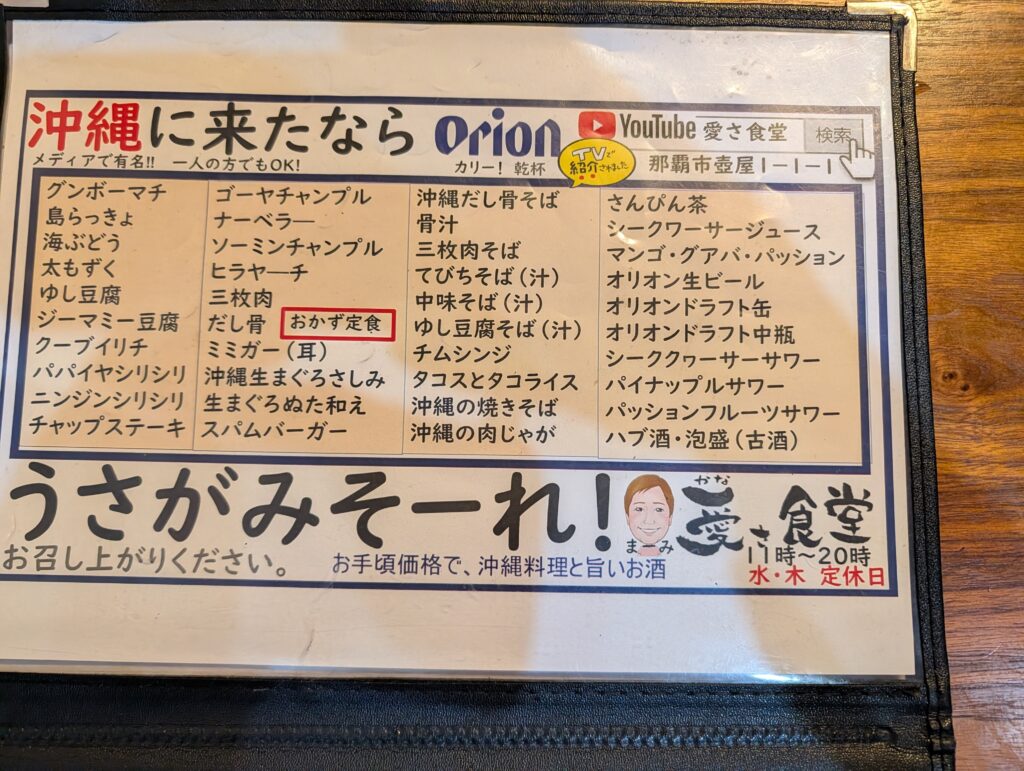 沖縄に来たなら
Orion
YouTube 愛さ食堂 検索
メディアで有名!! 一人の方でもOK!
カリー! 乾杯
TVで
紹介されました
那覇市壺屋1-1-1
グンボーマチ
島らっきょ
海ぶどう
太もずく
ゆし豆腐
ジーマミー豆腐
クーブイリチ
パパイヤシリシリ
ニンジンシリシリ
チャップステーキ
ゴーヤチャンプル
ナーベラー
ソーミンチャンプル
ヒラヤーチ
三枚肉
だし骨 おかず定食
ミミガー(耳)
沖縄生まぐろさしみ
生まぐろぬた和え
スパムバーガー
沖縄だし骨そば
骨汁
三枚肉そば
てびちそば(汁)
中味そば(汁)
ゆし豆腐そば(汁)
チムシンジ
タコスとタコライス
沖縄の焼きそば
沖縄の肉じゃが
さんぴん茶
シークワーサージュース
マンゴ・グアバ・パッション
オリオン生ビール
オリオンドラフト缶
オリオンドラフト中瓶
シーククヮーサーサワー
パイナップルサワー
パッションフルーツサワー
ハブ酒・泡盛(古酒)
うさがみそーれ!
まーみ
かな
愛さ食堂
お召し上がりください。
お手頃価格で、沖縄料理と旨いお酒
11時～20時
水・木 定休日